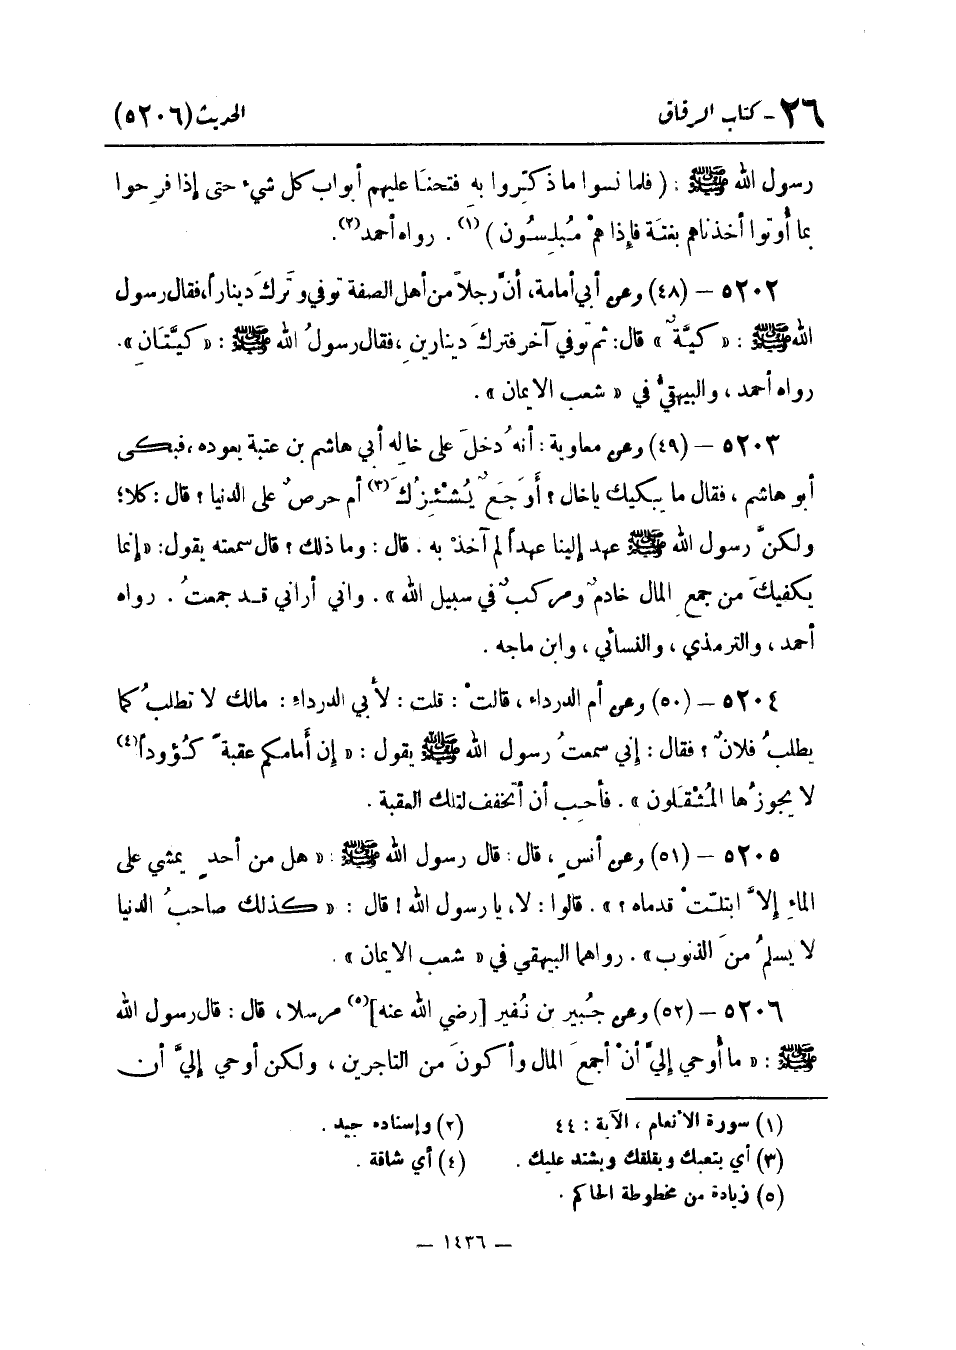 ٢٦ - كتاب الرقاق الحديث (٥٢٠٦)
رسول الله ﷺ : ( فلما نسوا ما ذُكِّروا بهِ فتحنَا عليهم أبواب كل شيء حتى إذا فرِحوا
بما أُوتوا أخذناهم بغتَة فإذا همْ مُبلِسُون ) (١) . رواه أحمد (٢).
٥٢٠٢ – (٤٨) وعن أبي أمامة، أنَّ رجلاً من أهل الصفة توفي وتَركَ ديناراً، فقال رسول
الله ﷺ : « كيَّةٌ » قال: ثم توفي آخر فتركَ دينارينِ ، فقال رسولُ الله ﷺ : « كيَّتَانِ ».
رواه أحمد ، والبيهقيُّ في « شعب الايمان » .
٥٢٠٣ – (٤٩) وعن معاوية : أنهُ دخلَ على خالِه أبي هاشم بن عتبة يعوده ، فبكى
أبو هاشم ، فقال ما يبكيك ياخال ؟ أَوَجَعٌ يُشْئِزُكَ (٣) أم حرصٌ على الدنيا ؟ قال : كلا؛
ولكنَّ رسول الله ﷺ عهد إلينا عهداً لم آخذْ به . قال : وما ذلك ؟ قال سمعته يقول: « إنما
يكفيكَ من جمعِ المال خادمٌ ومركبٌ في سبيل الله » . واني أراني قد جمعتُ . رواه
أحمد ، والترمذي ، والنسائي ، وابن ماجه .
٥٢٠٤ – (٥٠) وعن أم الدرداء ، قالتْ : قلت : لأبي الدرداءِ : مالك لا تطلبُ كما
يطلبُ فلانٌ ؟ فقال : إني سمعتُ رسول الله ﷺ يقول : « إن أمامكم عقبةً كؤوداً (٤)
لا يجوزُها المُثْقَلون » . فأحب أن أتخفف لتلك العقبة .
٥٢٠٥ – (٥١) وعن أنسٍ ، قال : قال رسول الله ﷺ : « هل من أحدٍ يمشي على
الماءِ إلاَّ ابتلتْ قدماه ؟ » . قالوا : لا، يا رسول الله ! قال : « كذلك صاحبُ الدنيا
لا يسلمُ منَ الذنوب » . رواهما البيهقي في « شعب الايمان » .
٥٢٠٦ – (٥٢) وعن جُبير بن نُفير [رضي الله عنه] (٥) مرسلا ، قال : قال رسول الله
ﷺ : « ما أُوحي إليَّ أنْ أجمعَ المال وأكونَ من التاجرين ، ولكن أوحي إليَّ أن
(١) سورة الأنعام ، الآية : ٤٤ (٢) وإسناده جيد .
(٣) أي يتعبك ويقلقك ويشتد عليك . (٤) أي شاقة .
(٥) زيادة من مخطوطة الحاكم .
– ١٤٣٦ –